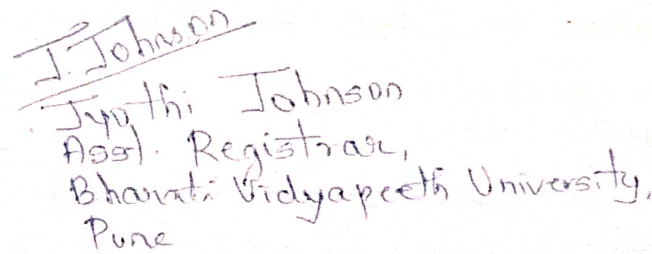 J. Johnson
Jyothi Johnson
Asst. Registrar,
Bharati Vidyapeeth University,
Pune